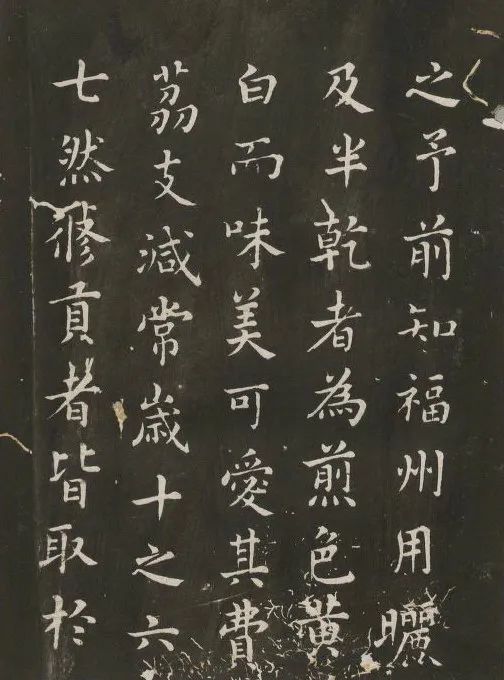 之予前知福州用曬
及半乾者為煎色黃
白而味美可愛其費
荔支減常歲十之六
七然修貢者皆取於